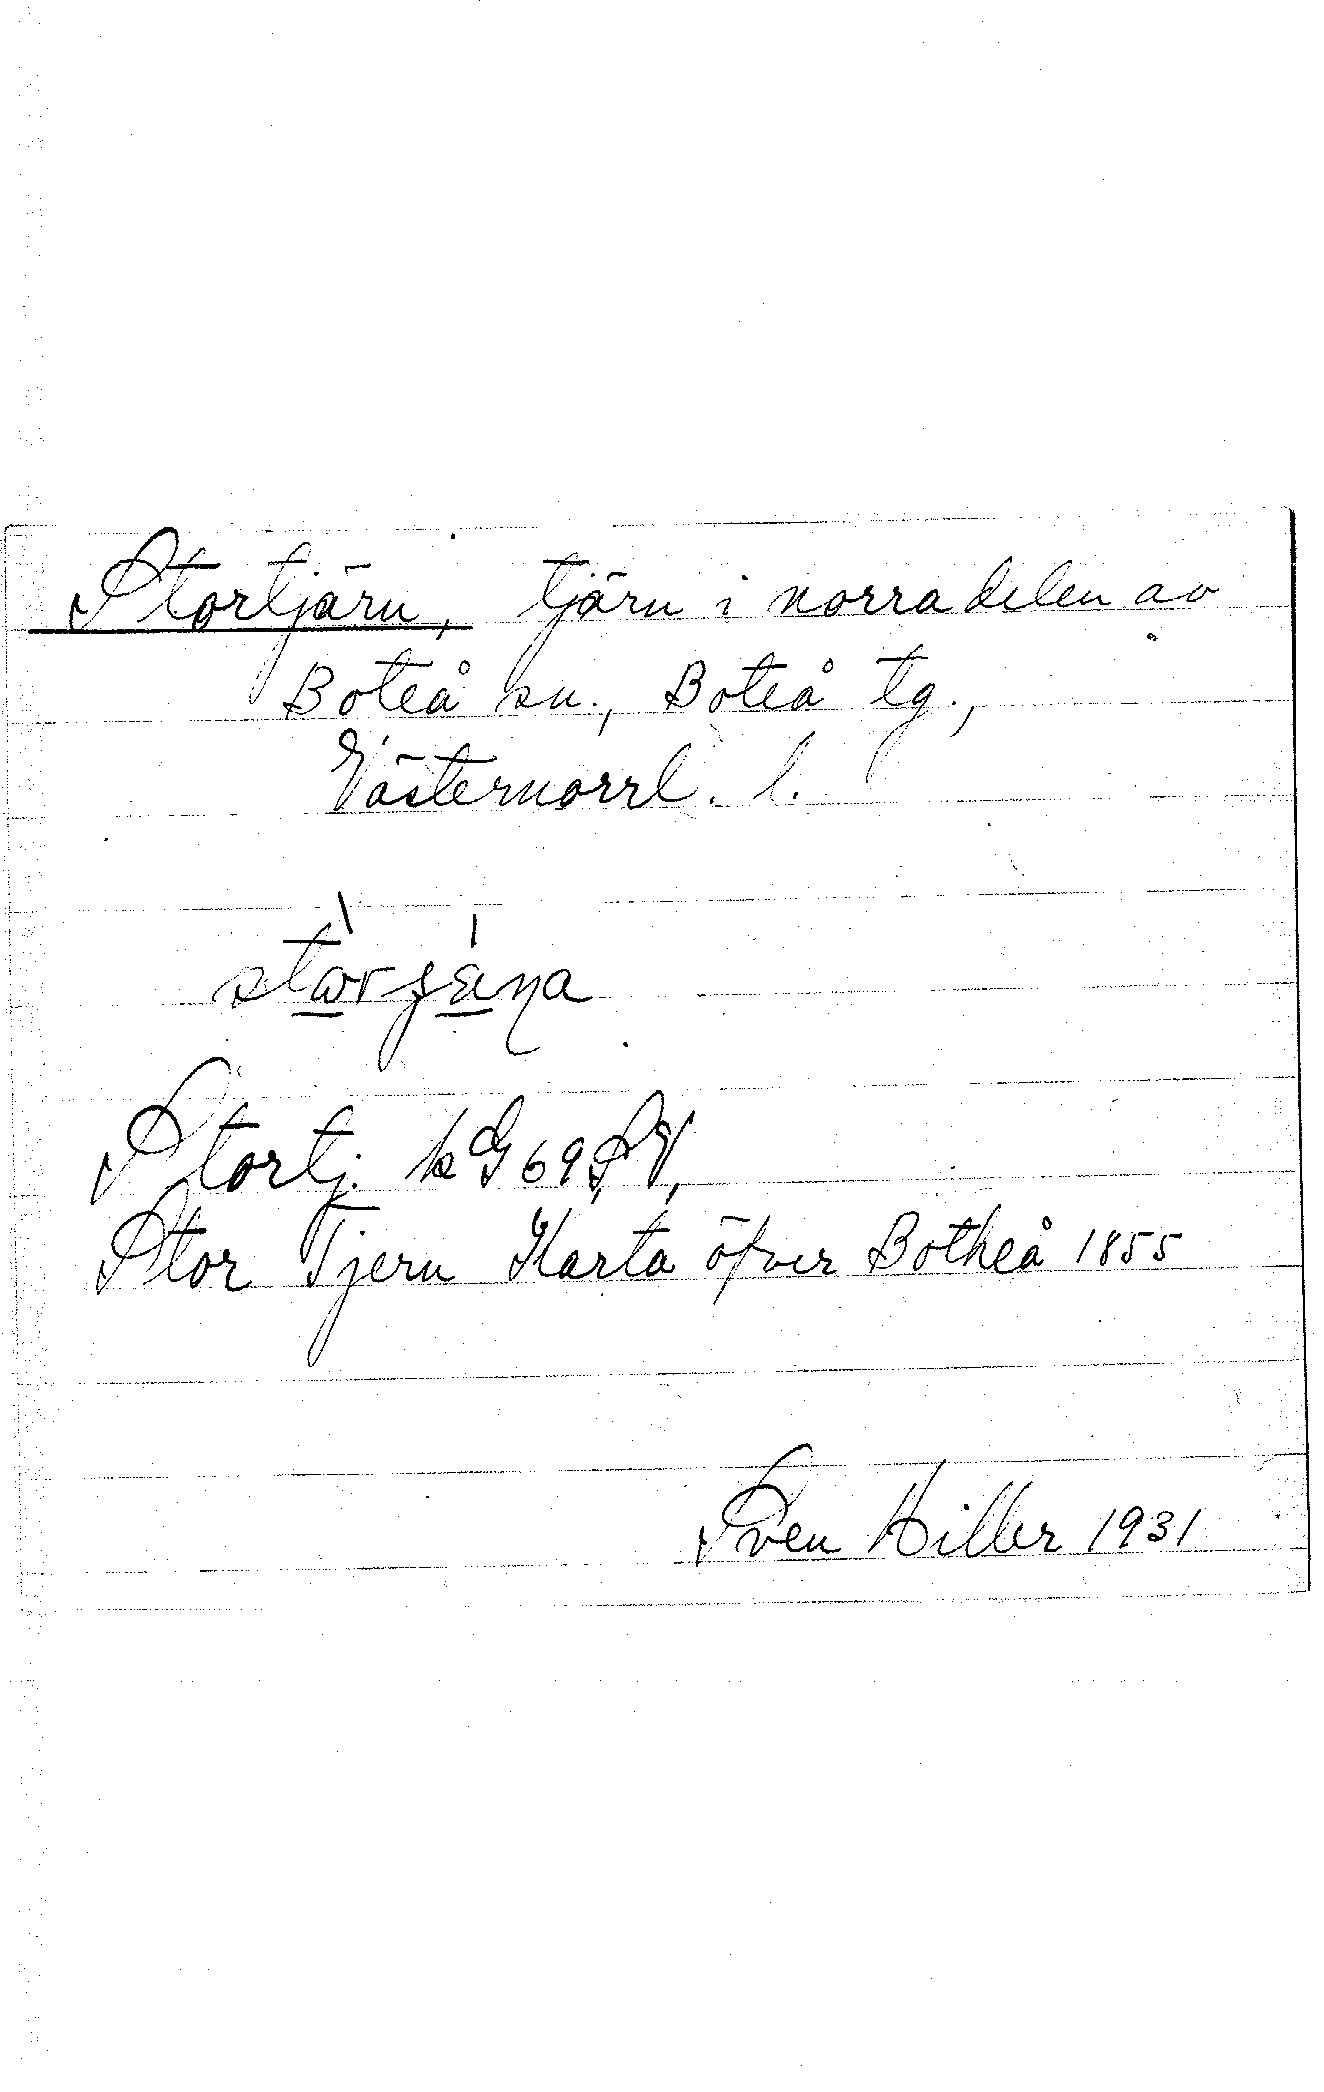 Stortjärn, tjärn i norra delen av
Boteå sn., Boteå tg.,
Västernorrl. l.
Stortj. kG 69 SV,
Stor Tjern Karta öfver Botheå 1855
Sven Hiller 1931